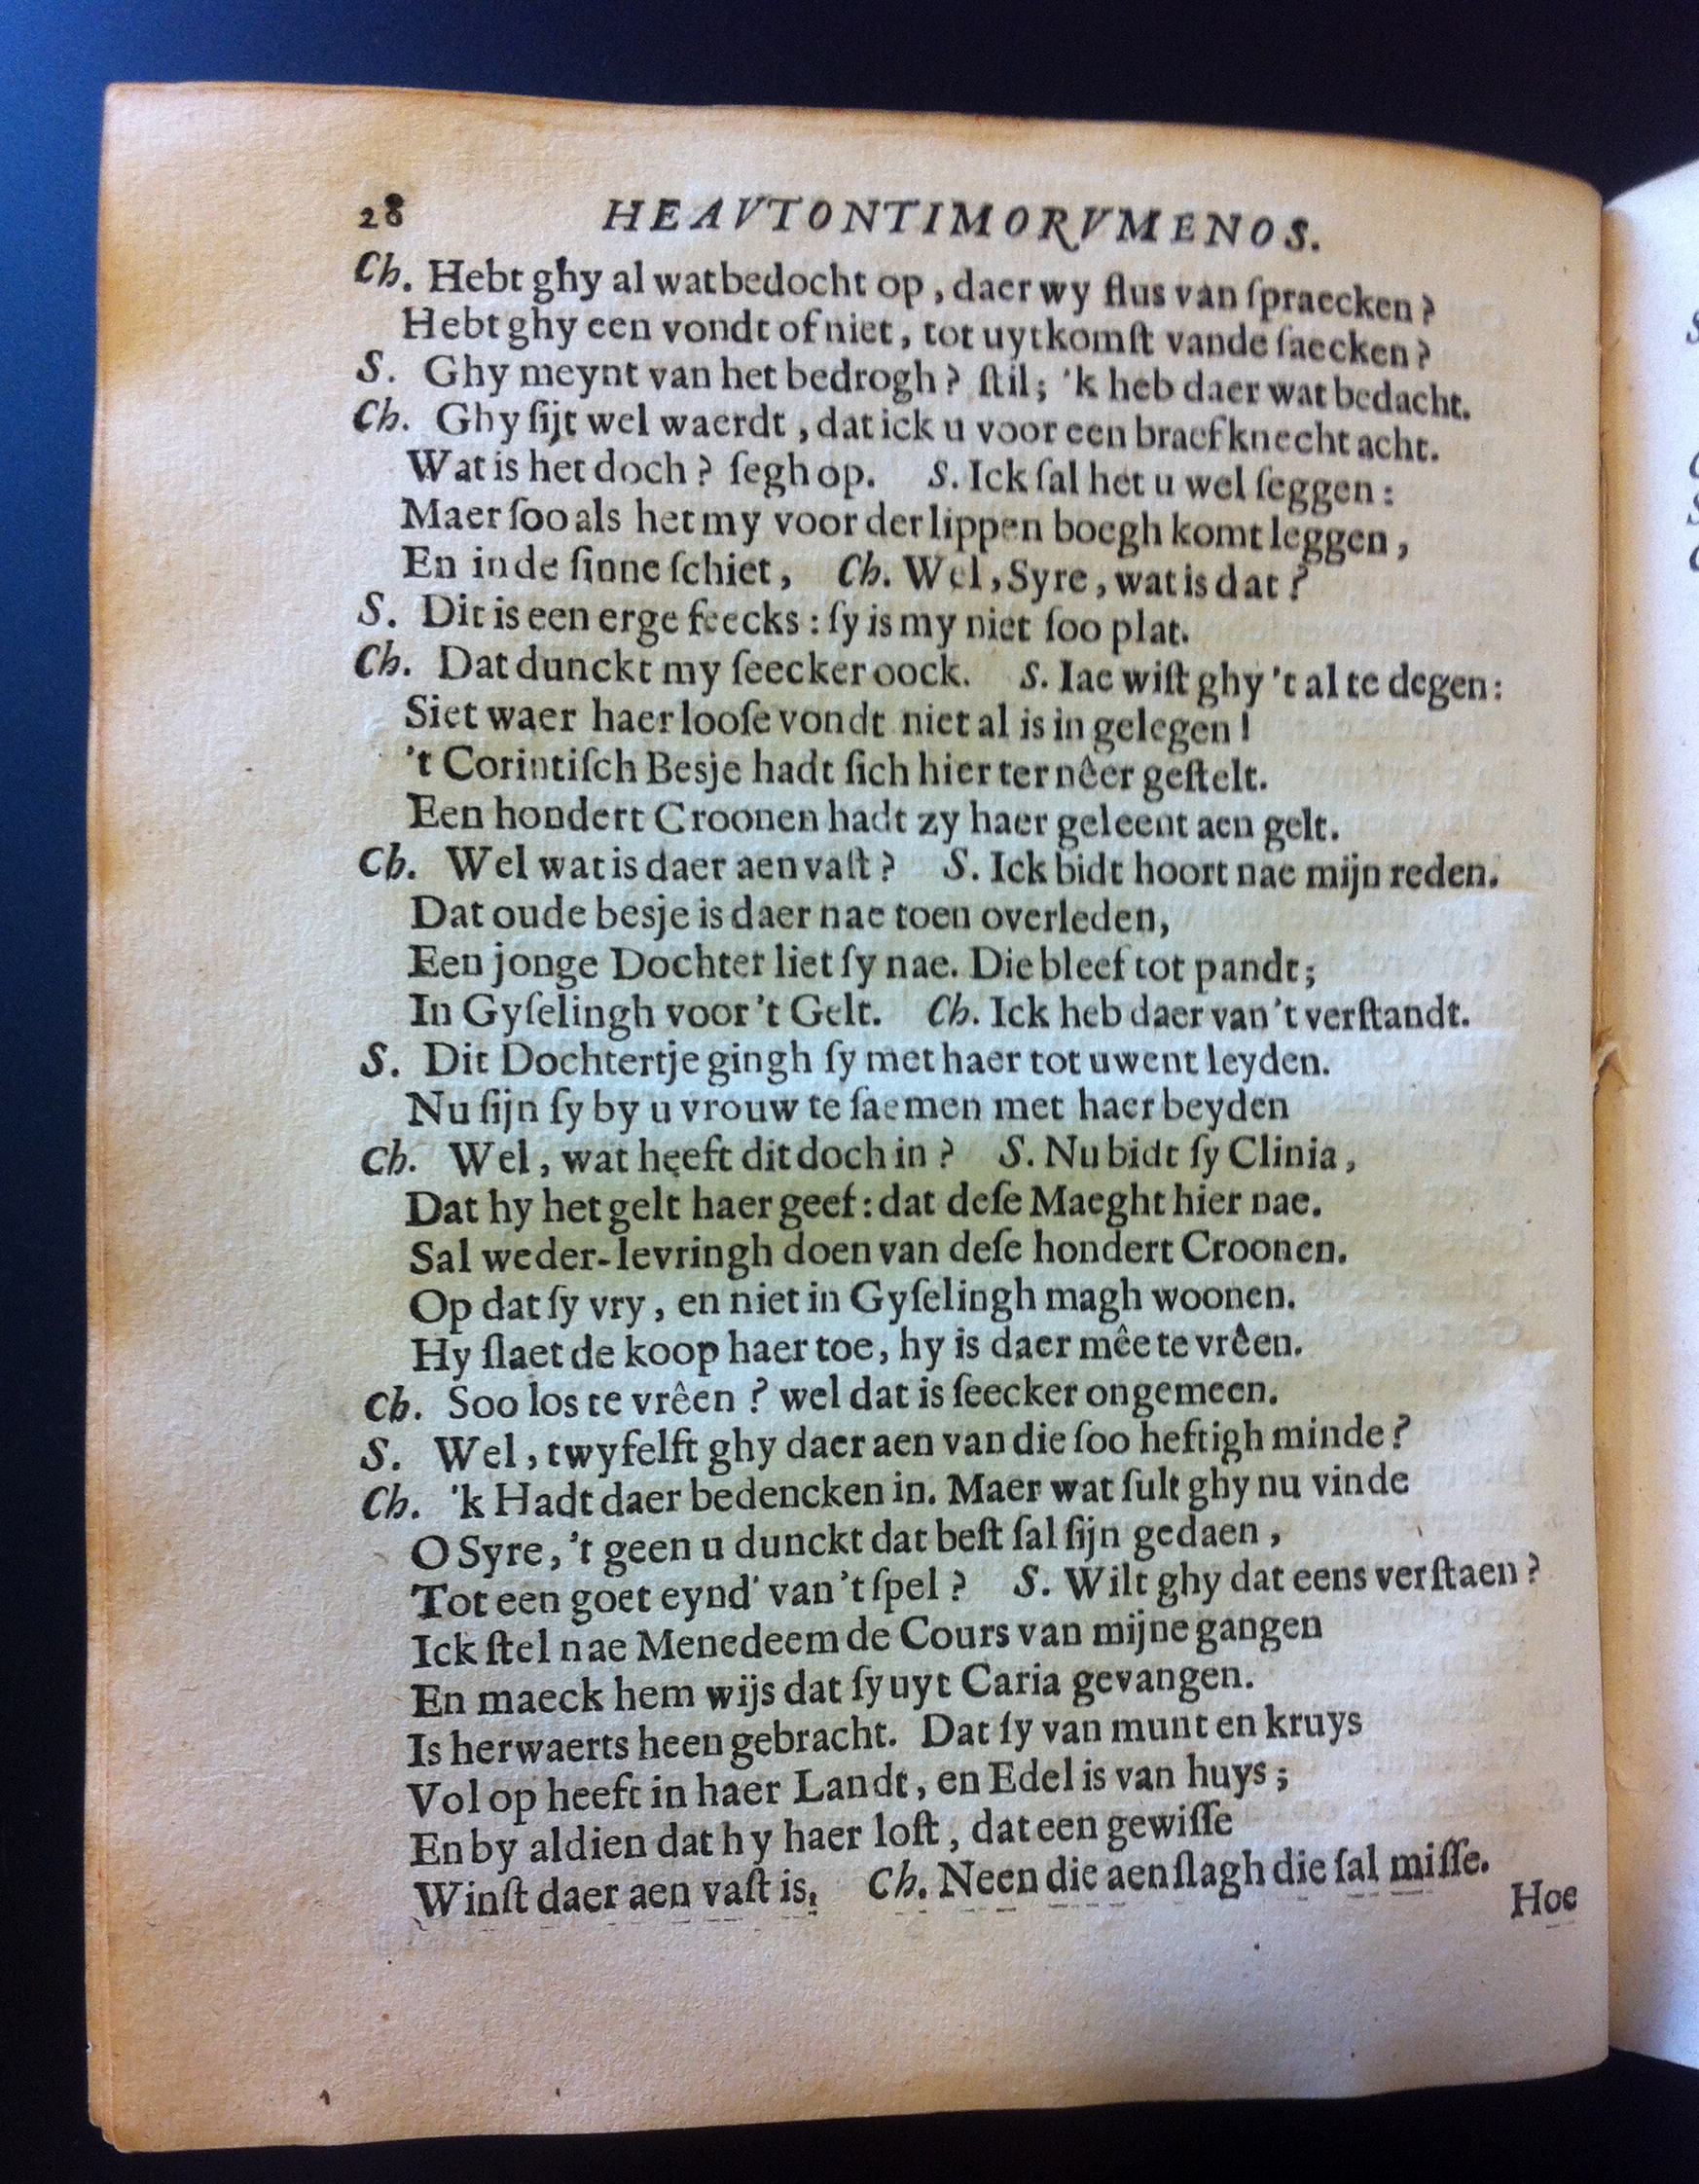 28 HEAVTONTIMORVMENOS.
Ch. Hebt ghy al wat bedocht op, daer wy flus van ſpraecken?
Hebt ghy een vondt of niet, tot uytkomſt vande ſaecken?
S. Ghy meynt van het bedrogh? ſtil; 'k heb daer wat bedacht.
Ch. Ghy ſijt wel waerdt, dat ick u voor een braef knecht acht.
Wat is het doch? ſegh op. S. Ick ſal het u wel ſeggen:
Maer ſoo als het my voor der lippen boegh komt leggen,
En in de ſinne ſchiet, Ch. Wel, Syre, wat is dat?
S. Dit is een erge feecks: ſy is my niet ſoo plat.
Ch. Dat dunckt my ſeecker oock. S. Iae wiſt ghy 't al te degen:
Siet waer haer looſe vondt niet al is in gelegen!
't Corintiſch Besje hadt ſich hier ter nêer geſtelt.
Een hondert Croonen hadt zy haer geleent aen gelt.
Ch. Wel wat is daer aen vaſt? S. Ick bidt hoort nae mijn reden.
Dat oude besje is daer nae toen overleden,
Een jonge Dochter liet ſy nae. Die bleef tot pandt;
In Gyſelingh voor 't Gelt. Ch. Ick heb daer van 't verſtandt.
S. Dit Dochtertje gingh ſy met haer tot uwent leyden.
Nu ſijn ſy by u vrouw te ſaemen met haer beyden
Ch. Wel, wat heeft dit doch in? S. Nu bidt ſy Clinia,
Dat hy het gelt haer geef: dat deſe Maeght hier nae.
Sal weder-levringh doen van deſe hondert Croonen.
Op dat ſy vry, en niet in Gyſelingh magh woonen.
Hy ſlaet de koop haer toe, hy is daer mêe te vrêen.
Ch. Soo los te vrêen? wel dat is ſeecker ongemeen.
S. Wel, twyfelft ghy daer aen van die ſoo heftigh minde?
Ch. 'k Hadt daer bedencken in. Maer wat ſult ghy nu vinde
O Syre, 't geen u dunckt dat beſt ſal ſijn gedaen,
Tot een goet eynd' van 't ſpel? S. Wilt ghy dat eens verſtaen?
Ick ſtel nae Menedeem de Cours van mijne gangen
En maeck hem wijs dat ſy uyt Caria gevangen.
Is herwaerts heen gebracht. Dat ſy van munt en kruys
Vol op heeft in haer Landt, en Edel is van huys;
En by aldien dat hy haer loſt, dat een gewiſſe
Winſt daer aen vaſt is. Ch. Neen die aenſlagh die ſal miſſe.
Hoe